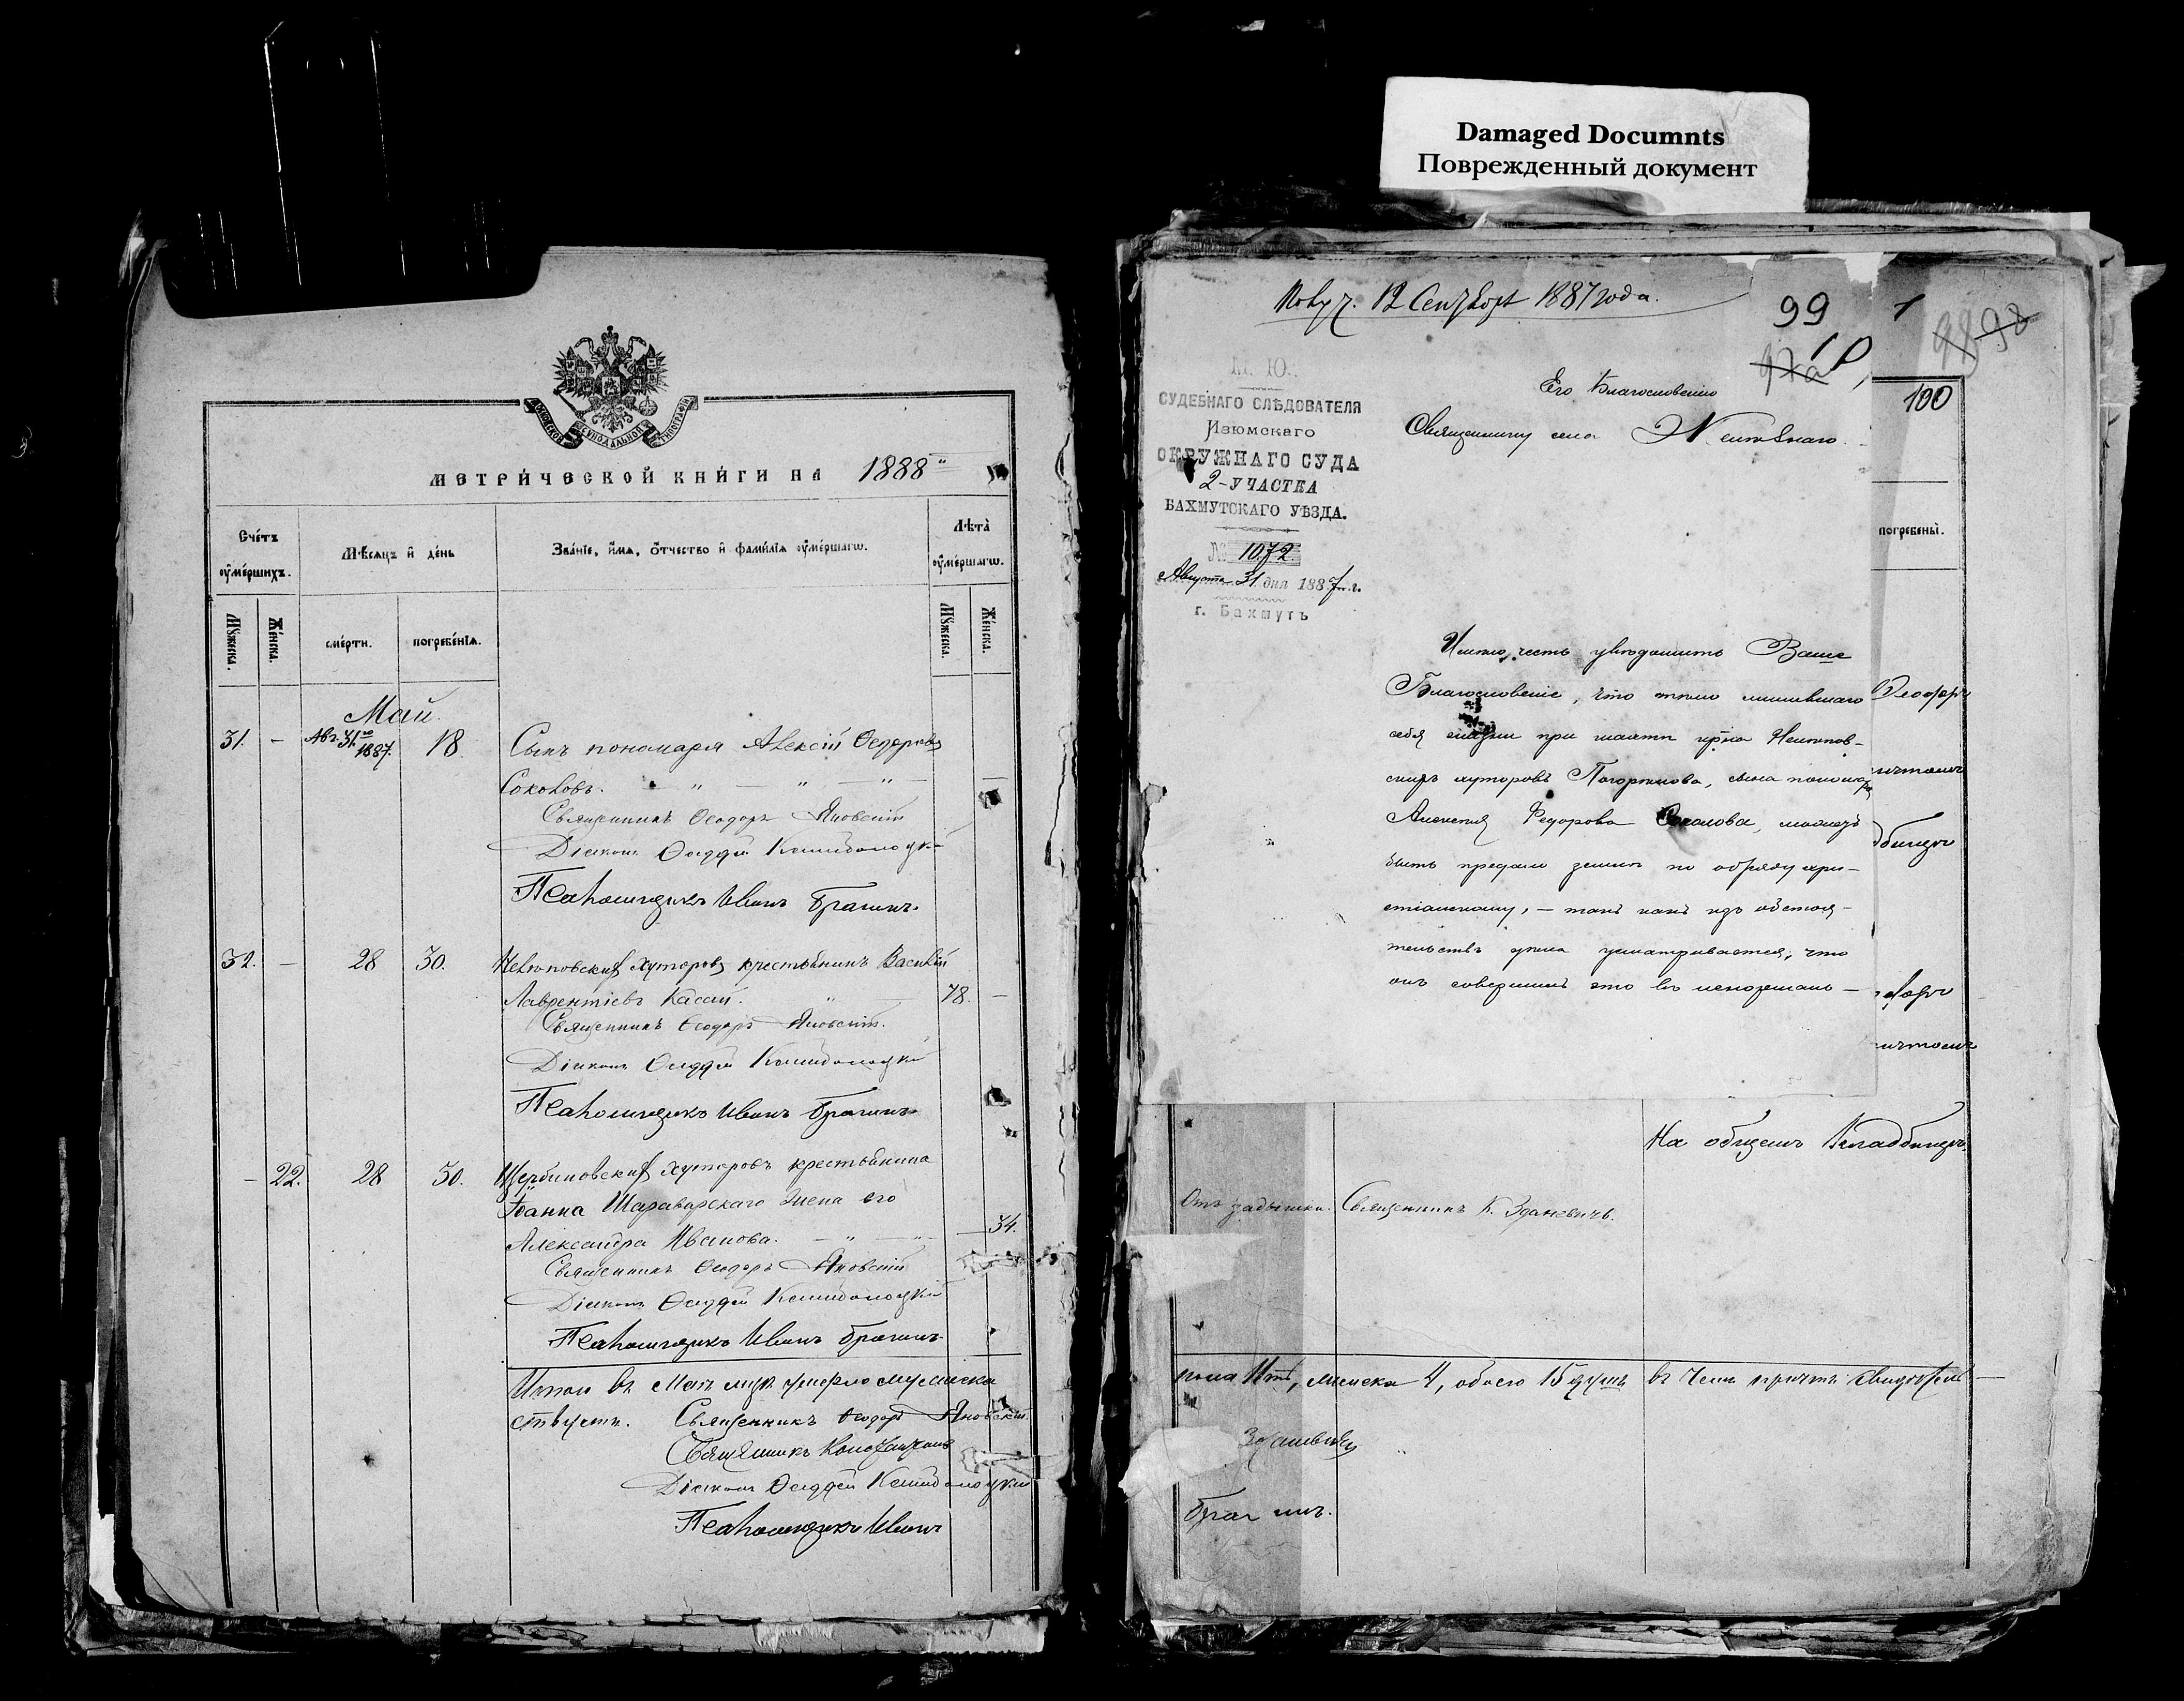 Damaged Documnts
Поврежденный документ
СѴНОДАЛЬНОЙ
МЕТРИ́ЧЕСКОЙ КНИ́ГИ НА 1888
Сче́тъ ᲂу҆ме́ршихъ.
Мѣ́сяцъ и҆ де́нь
Зва́нїе, и҆́мя, ѻ҆́тчество и҆ фами́лїя ᲂу҆ме́ршагѡ.
Лѣта̀ ᲂу҆ме́ршагѡ.
Мꙋ́жеска.
Же́нска.
сме́рти.
погребе́нїѧ.
Мꙋ́жеска.
Же́нска.
Май.
31. - Авг. 31го 1887. 18. Сынъ пономаря Алексій Ѳедоровъ
Соколовъ. - " - " - " -
Священникъ Ѳеодоръ Яновскій
Діаконъ Ѳаддей
Псаломщикъ Иванъ Брагинъ.
32. - 28 30. Нелѣповскихъ хуторовъ крестьянинъ Василій
Лаврентіевъ Касай. " - 78. -
Священникъ Ѳеодоръ Яновскій.
Діаконъ Ѳаддей
Псаломщикъ Иванъ Брагинъ
- 22. 28 30. Щербиновскихъ хуторовъ крестьянина
Іоанна Шараварскаго жена его
Александра Иванова. - " " - - 34.
Священникъ Ѳеодоръ Яновскій
Діаконъ Ѳаддей
Псаломщикъ Иванъ Брагинъ
Итого въ Маѣ мцѣ умерло мужеска
ствуетъ. Священникъ Ѳеодоръ Яновскій.
Священникъ Константинъ
Діаконъ Ѳаддей
Псаломщикъ Иванъ
Получ. 12 Сентября 1887 года.
99
97а
1
98 98
100
М. Ю.
СУДЕБНАГО СЛѢДОВАТЕЛЯ
Изюмскаго
ОКРУЖНАГО СУДА
2-УЧАСТКА
БАХМУТСКАГО УѢЗДА.
№ 1072.
Августа 31 дня 1887 г.
г. Бахмутъ
Его Благословенію
Священнику села
погребены̀.
Имѣю честь увѣдомить Ваше
Благословеніе, что тѣло лишившаго
себя жизни при шахтѣ Нелѣпов-
скихъ хуторовъ сына пономаря
Алексѣя Федорова Соколова, можетъ
быть предано землѣ по обряду хри-
стіанскому, - такъ какъ изъ обстоя-
тельствъ дѣла усматривается, что
онъ совершилъ это въ ненормаль-
Ѳеодоръ
На общемъ кладбищѣ.
Отъ задышки. Священникъ К. Зданевичъ.
пола 11ть, женска 4, обоего 15 душъ въ чемъ причтъ свидѣтель-
Зданевичъ
Брагинъ.